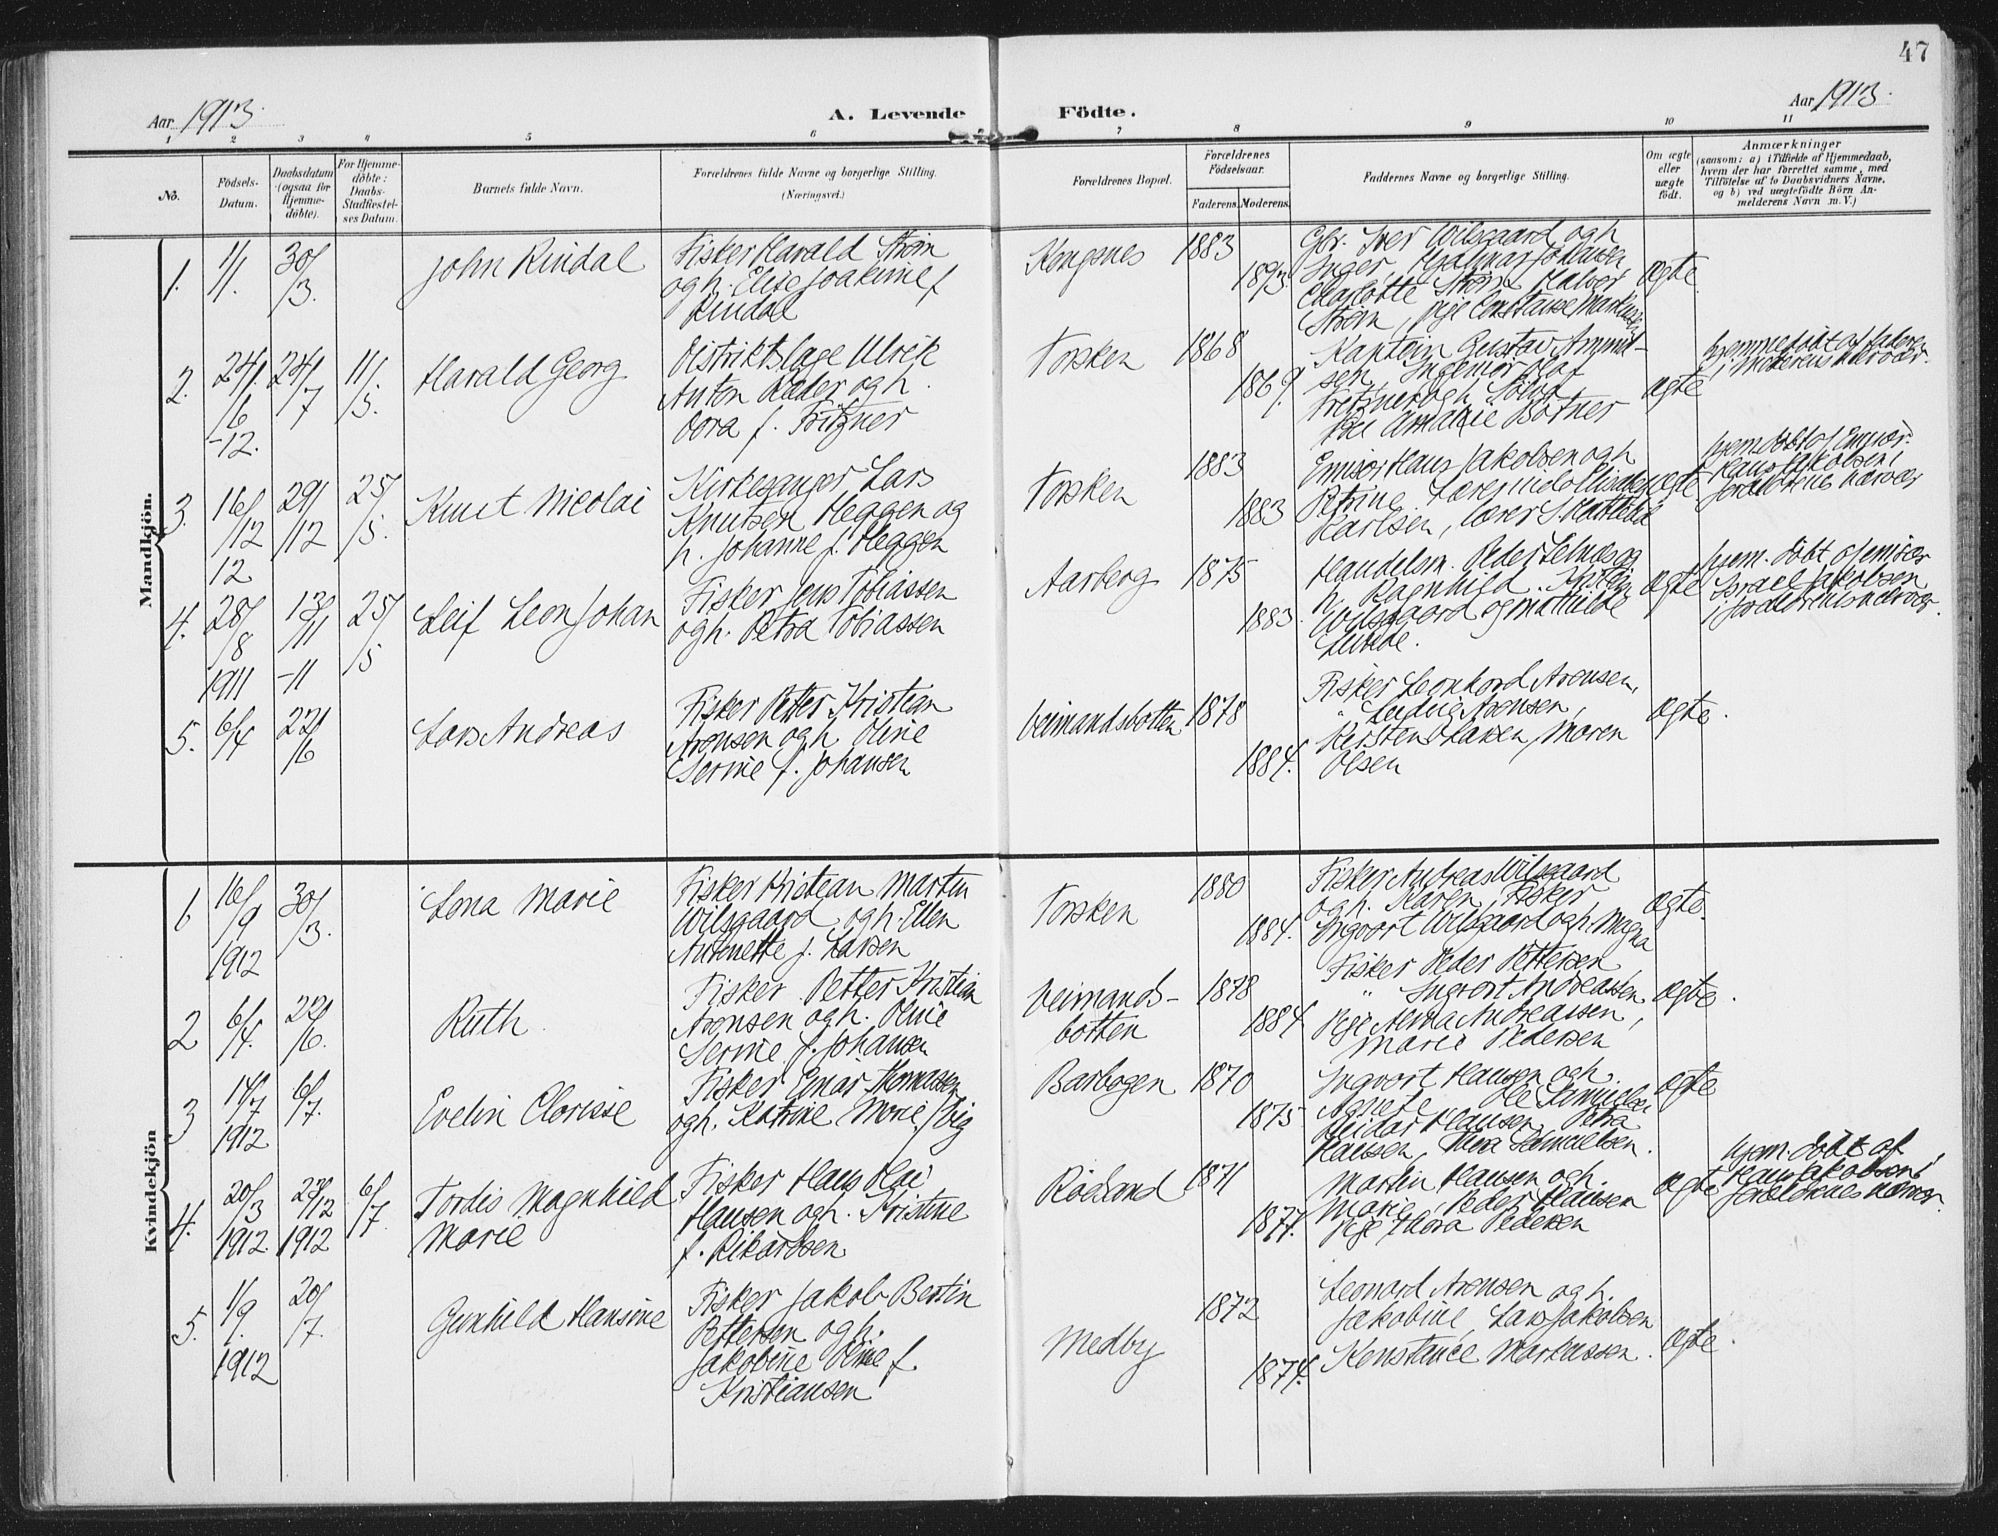 47
Aar 1913.
A. Levende Födte.
Aar 1913.
1 2 3 4 5 6 7 8 9 10 11
No.
Födsels-
Datum.
Daabsdatum
(ogsaa for
Hjemme-
døbte).
For Hjemme-
døbte:
Daabs-
Stadfæstel-
ses Datum.
Barnets fulde Navn.
Forældrenes fulde Navne og borgerlige Stilling.
(Næringsvei.)
Forældrenes Bopæl.
Forældrenes
Födselsaar.
Faderens. Moderens.
Faddernes Navne og borgerlige Stilling.
Om ægte
eller
uægte
födt.
Anmærkninger
(saasom: a) i Tilfælde af Hjemmedaab,
hvem der har forrettet samme, med
Tilföielse af to Daabsvidners Navne,
og b) ved uegtefødte Börn An-
melderens Navn m. V.)
Mandkjön.
1. 1/1. 30/3.
John Rindal
Fisker Harald Strøm
og h. Elise Joakime f
Rindal
Kongsnes
1883
1893.
Gbr. Iver Wilsgaard og h
Inger, Hjalmar Johansen
Charlotte Strøm Halvor
Strøm, pige Constanse Markussen
ægte
2. 24/6 -12. 24/7 11/5.
Harald Georg
Distriktslæge Ulrik
Anton Ræder og h.
Dora f. Fritzner
Torsken
1868
1869.
Kaptein Gustav Amund-
sen, Ingeniør Olaf
Fritzner og h.
Amalie Botner
ægte
hjemmedöbt af faderen
i moderens nærvær.
3. 16/12 12 29/12 25/5.
Knut Nicolai
Kirkesanger Lars
Knutsen Heggen og
h. Johanne f. Heggen
Torsken
1883
1883
Emisær Hans Jakobsen og h
Petrine.
Karlsen, lærer S.
ægte
hjem. döbt af Emisær.
Hans Jakobsen i
forældrenes nærvær
4. 28/8 1911 13/11 -11 25/5
Leif Leon Johan
Fisker Jens Tobiassen
og h. Petra Tobiassen
Aarberg
1875
1883.
Handelsm. Peder og
h. Ragnhild.
Wilsgaard og Mathilde
ægte
hjem. döbt af emisær
Israel Jakobsen
i forældrenes nærvær.
5. 6/4 22/6
Lars Andreas
Fisker Petter Kristian
Aronsen og h. Oline
Serine f. Johansen
Veimandsbotten
1878
1884.
Fisker Leonhard Aronsen,
" Ludvig Aronsen,
Kirsten Larsen, Maren
Olsen
ægte.
Kvindekjön
1 16/9 1912 30/3.
Lona Marie
Fisker Kristian Martin
Wilsgaard og h. Ellen
Antonette f. Larsen
Torsken
1880
1884.
Fisker Andreas Wilsgaard
og h. Karen, Fisker
Ingvart Wilsgaard og h. Magna
ægte.
2 6/4. 22/6.
Ruth
Fisker Petter Kristian
Aronsen og h. Oline
Serine f. Johansen
Veimands-
botten
1878
1884
Fisker Peder Pettersen
" Ingvart Andreassen,
Pige Alvina Andreassen,
Marie Pedersen
ægte.
3 14/7 1912 6/7.
Evelin Clorisse
Fisker Einar Thomassen
og h. Katrine Marie f.
Barbogen
1870
1875
Ingvart Hansen og h.
Agnete Ole Samuelsen
Reidar Hansen, Petra
Hansen, Thea Samuelsen.
ægte
4. 20/3 1912. 27/12 1912 6/7.
Tordis Magnhild
Marie
Fisker Hans Olai
Hansen og h. Kristine
f. Rikardsen
Rödsand
1871
1877.
Martin Hansen og h.
Marie, Peder Hansen
pige Thora Pedersen
ægte
hjem. döbt af
Hans Jakobsen i
forældrenes nærvær.
5. 1/9. 1912 20/7.
Gunhild Hansine
Fisker Jakob Bertin
Pettersen og h.
Jakobine Oline f.
Kristiansen
Medby
1872
1874.
Leonard Aronsen og h.
Jakobine, Lars Jakobsen
Konstance Markussen.
ægte.